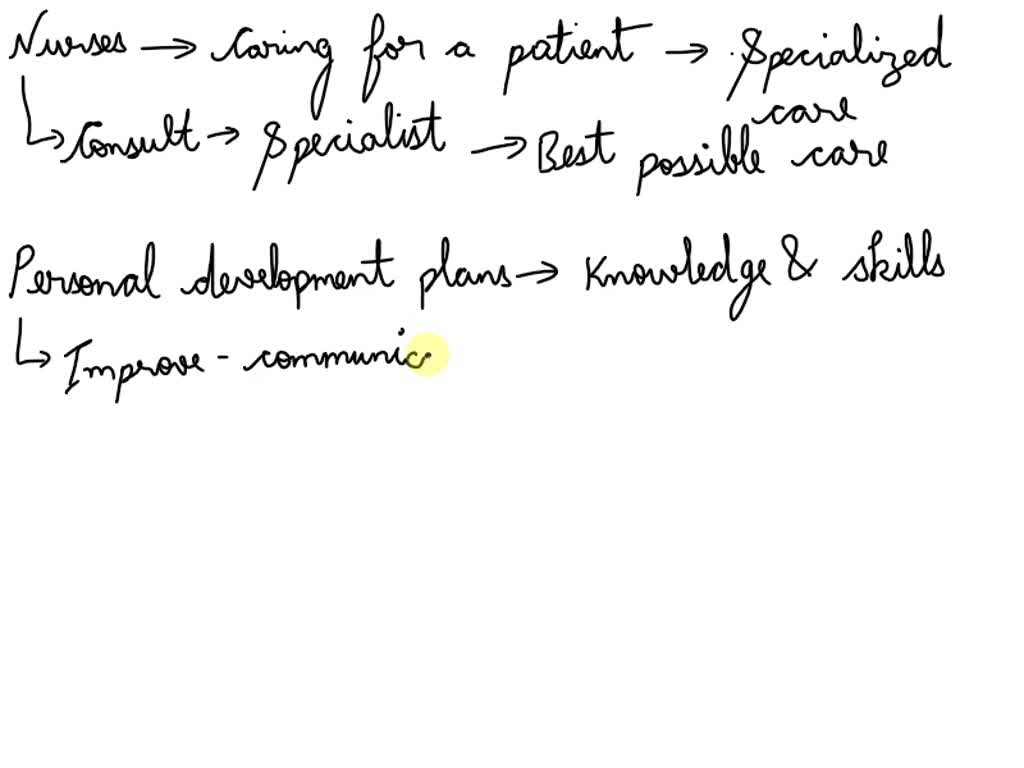 Nurses → Caring for a patient → Specialized care
↳ Consult → Specialist → Best possible care
Personal development plans → Knowledge & skills
↳ Improve - communic